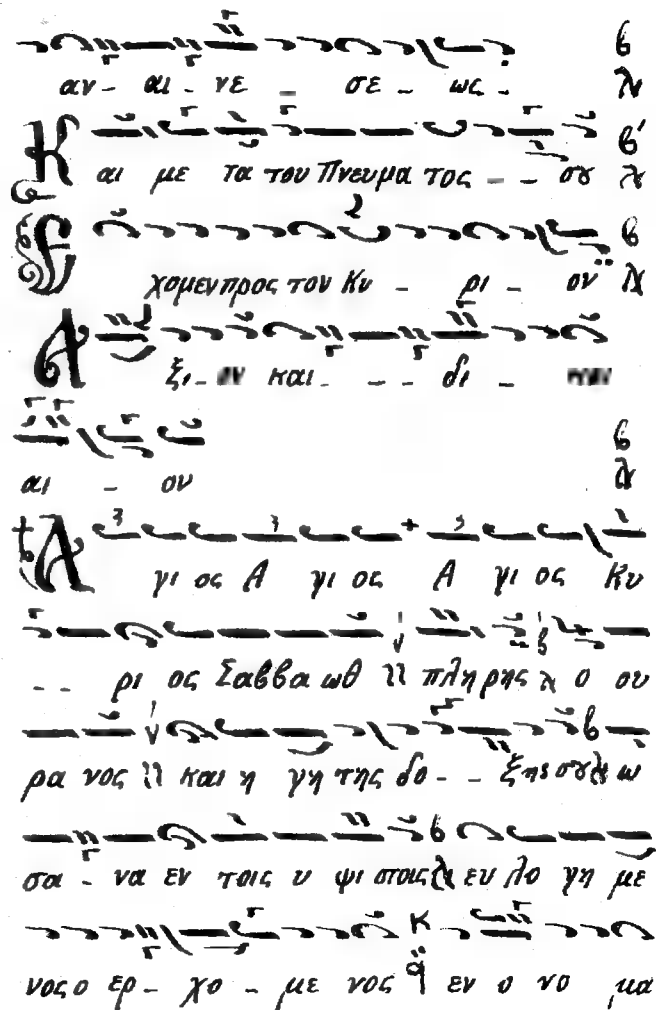 αν - αι - νε - σε - ως -
Και με τα του Πνευμα τος - - σȣ
Εχομεν προς τον Κυ - ρι - ον
Αξι - ον και - - - δι - και
αι - ον
Αγι ος Α γι ος Α γι ος Κυ
- - ρι ος Σαββα ωθ πλη ρης ο ου
ρα νος και η γη της δο - - ξης σȣ ω
σα - να εν τοις υ ψι στοις ευ λο γη με
νος ο ερ - χο - με νος εν ο νο μα